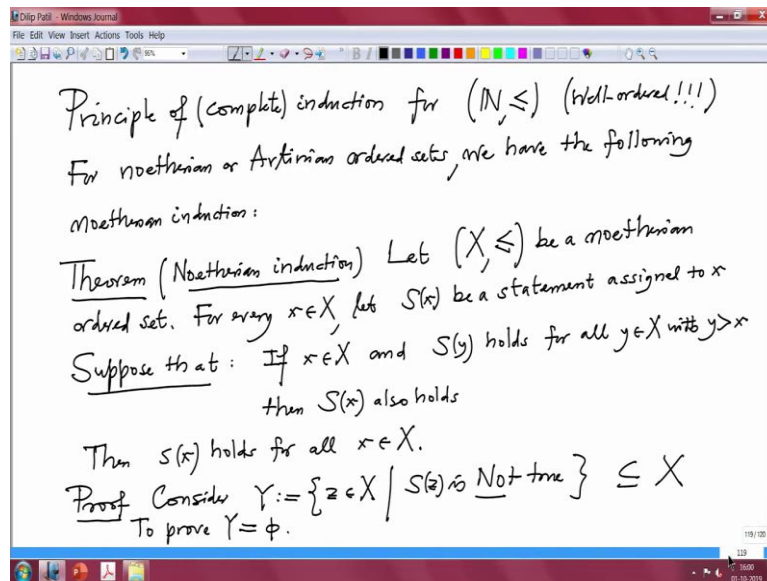 Dilip Patil - Windows Journal
File Edit View Insert Actions Tools Help
Principle of (complete) induction for (ℕ, ≤) (Well-ordered!!!)
For noetherian or Artinian ordered sets, we have the following
noetherian induction:
Theorem (Noetherian induction) Let (X, ≤) be a noetherian
ordered set. For every x ∈ X, let S(x) be a statement assigned to x
Suppose that: If x ∈ X and S(y) holds for all y ∈ X with y > x
then S(x) also holds
Then S(x) holds for all x ∈ X.
Proof Consider Y := {z ∈ X | S(z) is Not true} ⊆ X
To prove Y = ϕ.
119/120
119
16:00
01-10-2019